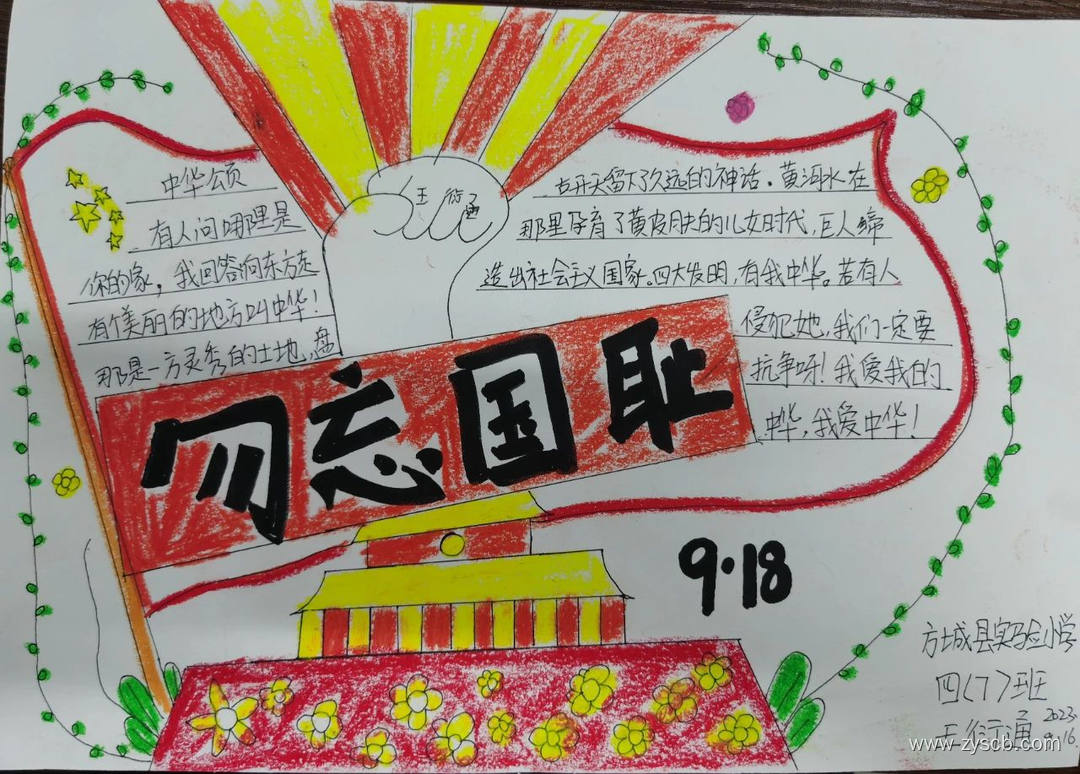 中华颂
有人问哪里是
你的家，我回答向东方走
有个美丽的地方叫中华！
那是一方灵秀的土地，盘
古开天留下久远的神话。黄河水在
那里孕育了黄皮肤的儿女时代，巨人缔
造出社会主义国家。四大发明，有我中华。若有人
侵犯她，我们一定要
抗争呀！我爱我的
中华，我爱中华！
勿忘国耻
9·18
方城县实验小学
四（7）班
2023.
9.16
www.zyscb.com